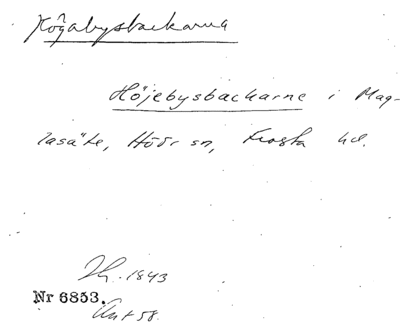 Högabysbackarna
Höjebysbackarne i Mag-
lasäte, Höör sn, Frosta hd.
1843
Nr 6853.